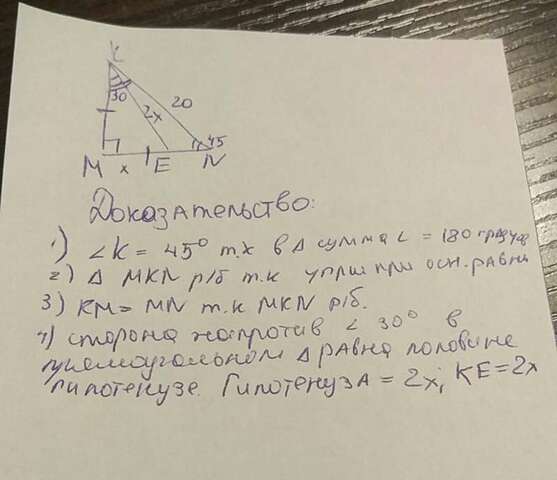 K
30
2x
20
45
M
x
E
N
Доказательство:
1) ∠K = 45° т.к в Δ сумма ∠ = 180 градусов
2) Δ MKN р/б т.к углы при осн. равны
3) KM = MN т.к MKN р/б.
4) сторона напротив ∠ 30° в
прямоугольном Δ равна половине
гипотенузе. Гипотенуза = 2x, KE = 2x